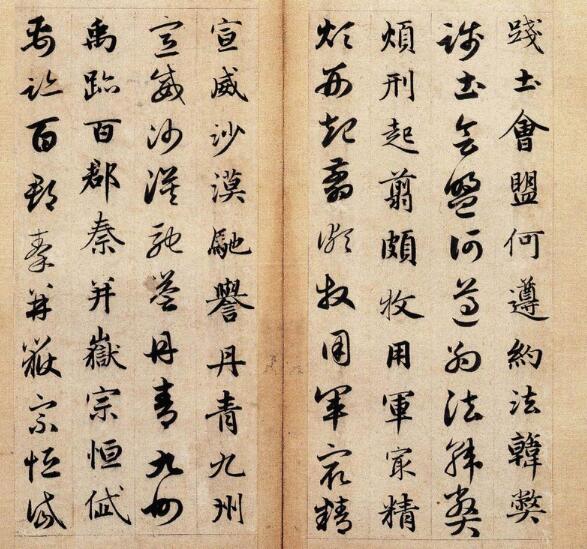 踐土會盟何遵約法韓弊
踐土會盟何遵約法韓弊
煩刑起翦頗牧用軍㝡精
煩刑起翦頗牧用軍㝡精
宣威沙漠馳譽丹青九州
宣威沙漠馳譽丹青九州
禹跡百郡秦并嶽宗恒岱
禹跡百郡秦并嶽宗恒岱